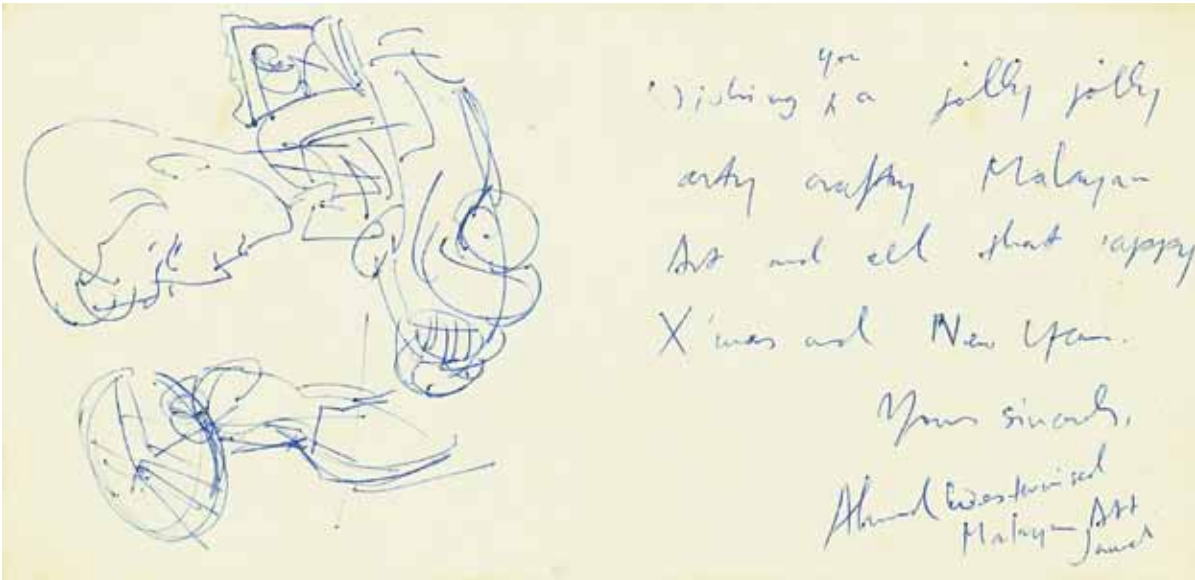 Wishing you a jolly jolly
arty crafty Malayan
Art and all that 'appy
X'mas and New Year.
Yours sincerely,
Ahmad Westernised
Malayan Art